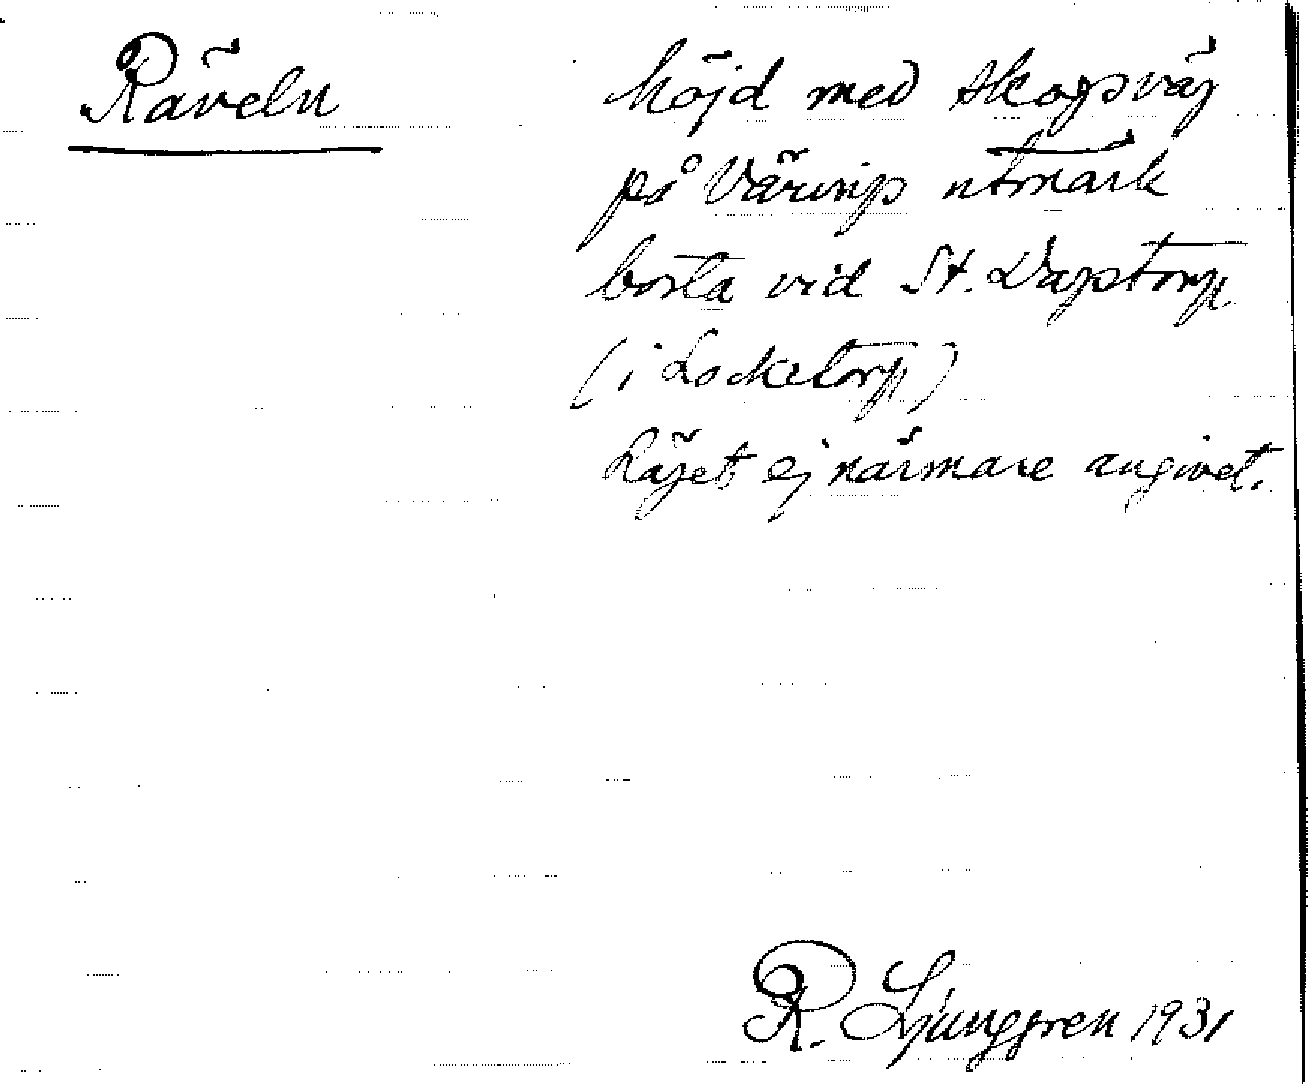 Räveln
höjd med skogsväg
på Värings utmark
borta vid St. Dagstorp
(i Locketorp)
Läget ej närmare angivet.
R. Ljunggren 1931